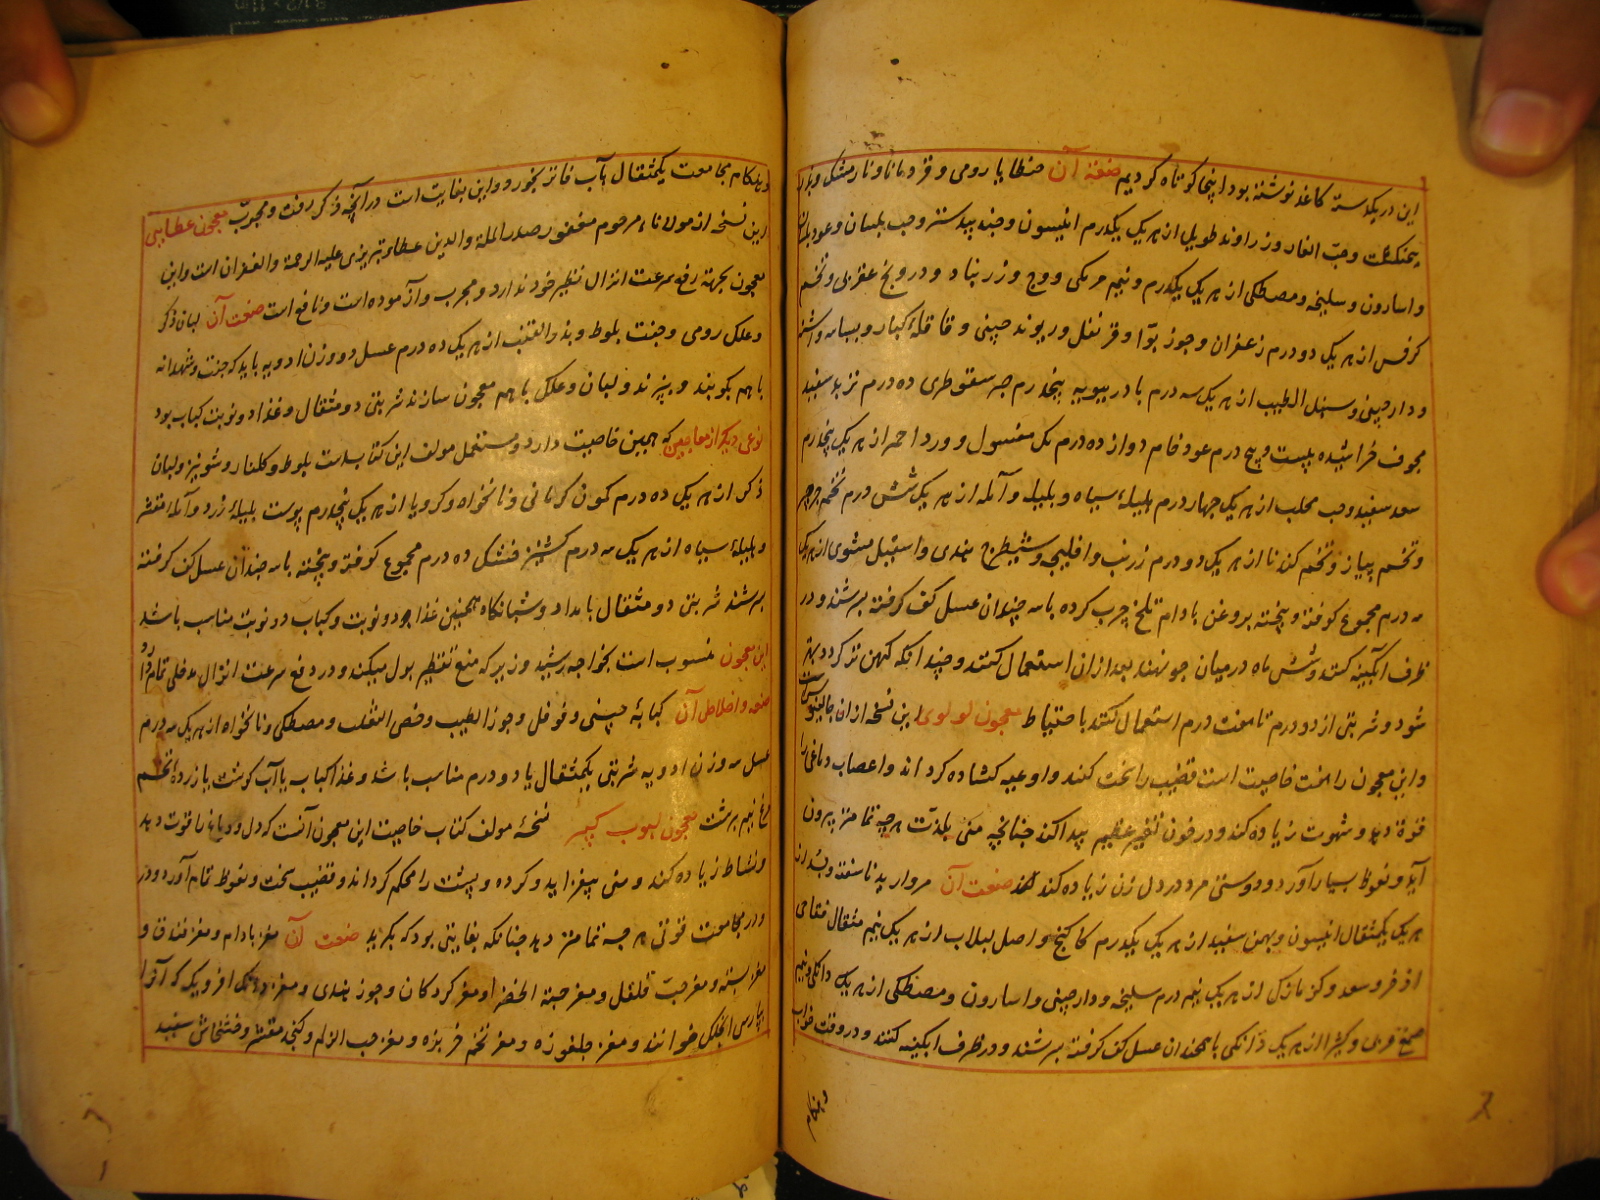 این در یکدسته کاغذ نوشته بود اینجا کوتاه کردیم صنعة آن جنطایا رومی و قردمانا و نارمشک و
و حب الغار و زراوند طویل از هر یک یکدرم انیسون و جندبیدستر و حب بلسان و عود بلسان
و اسارون و سلیخه و مصطکی از هر یک یکدرم و نیم مر مکی و وج و زرنباد و درونج عقربی و تخم
کرفس از هر یک دو درم زعفران و جوز بوا و قرنفل و ریوند چینی و قاقلهٔ کبار و بسباسه و اشنه
و دارچینی و سنبل الطیب از هر یک سه درم بادرنبویه پنجدرم صبر سقوطری ده درم تربد سفید
مجوف خراشیده بیست و پنج درم عود خام دوازده درم لک مغسول و ورد احمر از هر یک پنجدرم
سعد سفید و حب محلب از هر یک چهار درم هلیلهٔ سیاه و بلیله و آمله از هر یک شش درم تخم جرجیر
و تخم پیاز و تخم کندنا از هر یک دو درم زرنب و افلیجه و شیطرج هندی و اسقیل مشوی از هر یک
سه درم مجموع کوفته و بیخته بروغن بادام تلخ چرب کرده با سه چندان عسل کف کرفته بسرشند و در
ظرف آبگینه کنند و شش ماه در میان جو نهند بعد از آن استعمال کنند و چندانکه کهن تر کردد بهتر
شود و شربتی از دو درم تا هفت درم استعمال کنند باحتیاط معجون لولوی این نسخه از آن جالینوس است
و این معجون را هفت خاصیت است قضیب را سخت کند و اوعیه کشاده کرداند و اعصاب دماغی را
قوة دهد و شهوت زیاده کند و در خون تغییر عظیم پیدا کند چنانچه منی بلذت هرچه تمامتر بیرون
آید و نعوظ بسیار آورد و دوستی مرد در دل زن زیاده کند صنعت آن مروارید ناسفته و بسد از
هر یک یکمثقال انیسون و بهمن سفید از هر یک یکدرم کاکنج و اصل لبلاب از هر یک نیم مثقال فقاح
اذخر و سعد و کزمازک از هر یک نیم درم سلیخه و دارچینی و اسارون و مصطکی از هر یک دانکی و نیم
صمغ عربی و کثیرا از هر یک دانکی با سه چندان عسل کف کرفته بسرشند و در ظرف آبگینه کنند و در وقت خواب
و هنکام
و هنکام مجامعت یکمثقال بآب فاتر بخورد و این بغایت است در آنچه ذکر رفت و مجرب معجون عطایی
این نسخه از مولاناء مرحوم مغفور صدر الملة والدین عطاء تبریزی علیه الرحمة والغفران است و این
معجون بجهة رفع سرعت انزال نظیر خود ندارد و مجرب و آزموده است و نافع است صنعت آن لبان ذکر
و علک رومی و جفت بلوط و بذر القنب از هر یک ده درم عسل دو وزن ادویه باید که جفت و شهدانه
با هم بکوبند و بپزند و لبان و علک با هم معجون سازند شربتی دو مثقال و غذا دو نوبت کباب بود
نوعی دیگر از معاجین که همین خاصیت دارد و مستعمل مولف این کتابست بلوط و کلنار و شونیز و لبان
ذکر از هر یک ده درم کمون کرمانی و نانخواه و کرویا از هر یک پنجدرم پوست هلیلهٔ زرد و آملهٔ مقشر
و هلیلهٔ سیاه از هر یک سه درم کشنیز خشک ده درم مجموع کوفته و بیخته با سه چندان عسل کف کرفته
بسرشند شربتی دو مثقال بامداد و شبانکاه همچنین غذا دو نوبت و کباب دو نوبت مناسب باشد
این معجون منسوب است بخواجه رشید وزیر که منع تقطیر بول میکند و در دفع سرعت انزال مدخلی تمام دارد
صنعه و اخلاط آن کبابهٔ چینی و فوفل و جوز الطیب و خصی الثعلب و مصطکی و نانخواه از هر یک سه درم
عسل سه وزن ادویه شربتی یکمثقال یا دو درم مناسب باشد و غذا کباب یا آب کوشت یا زردهٔ تخم
مرغ نیم برشت معجون لبوب کبیر نسخهٔ مولف کتاب خاصیت این معجون آنست که دل و دماغ را قوت دهد
و نشاط زیاده کند و منی بیفزاید و کرده و پشت را محکم کرداند و قضیب سخت و نعوظ تمام آورد و در
و در مجامعت قوتی هرچه تمامتر دهد چنانکه بغایتی بود که بگرید صنعت آن مغز بادام و مغز فندق و
مغز پسته و مغز حب فلفل و مغز حبة الخضرا و مغز کردکان و جوز هندی و مغز که آنرا
بپارسی خوانند و مغز جلغوزه و مغز تخم خربزه و مغز حب الزلم و کنجد مقشر و خشخاش سفید